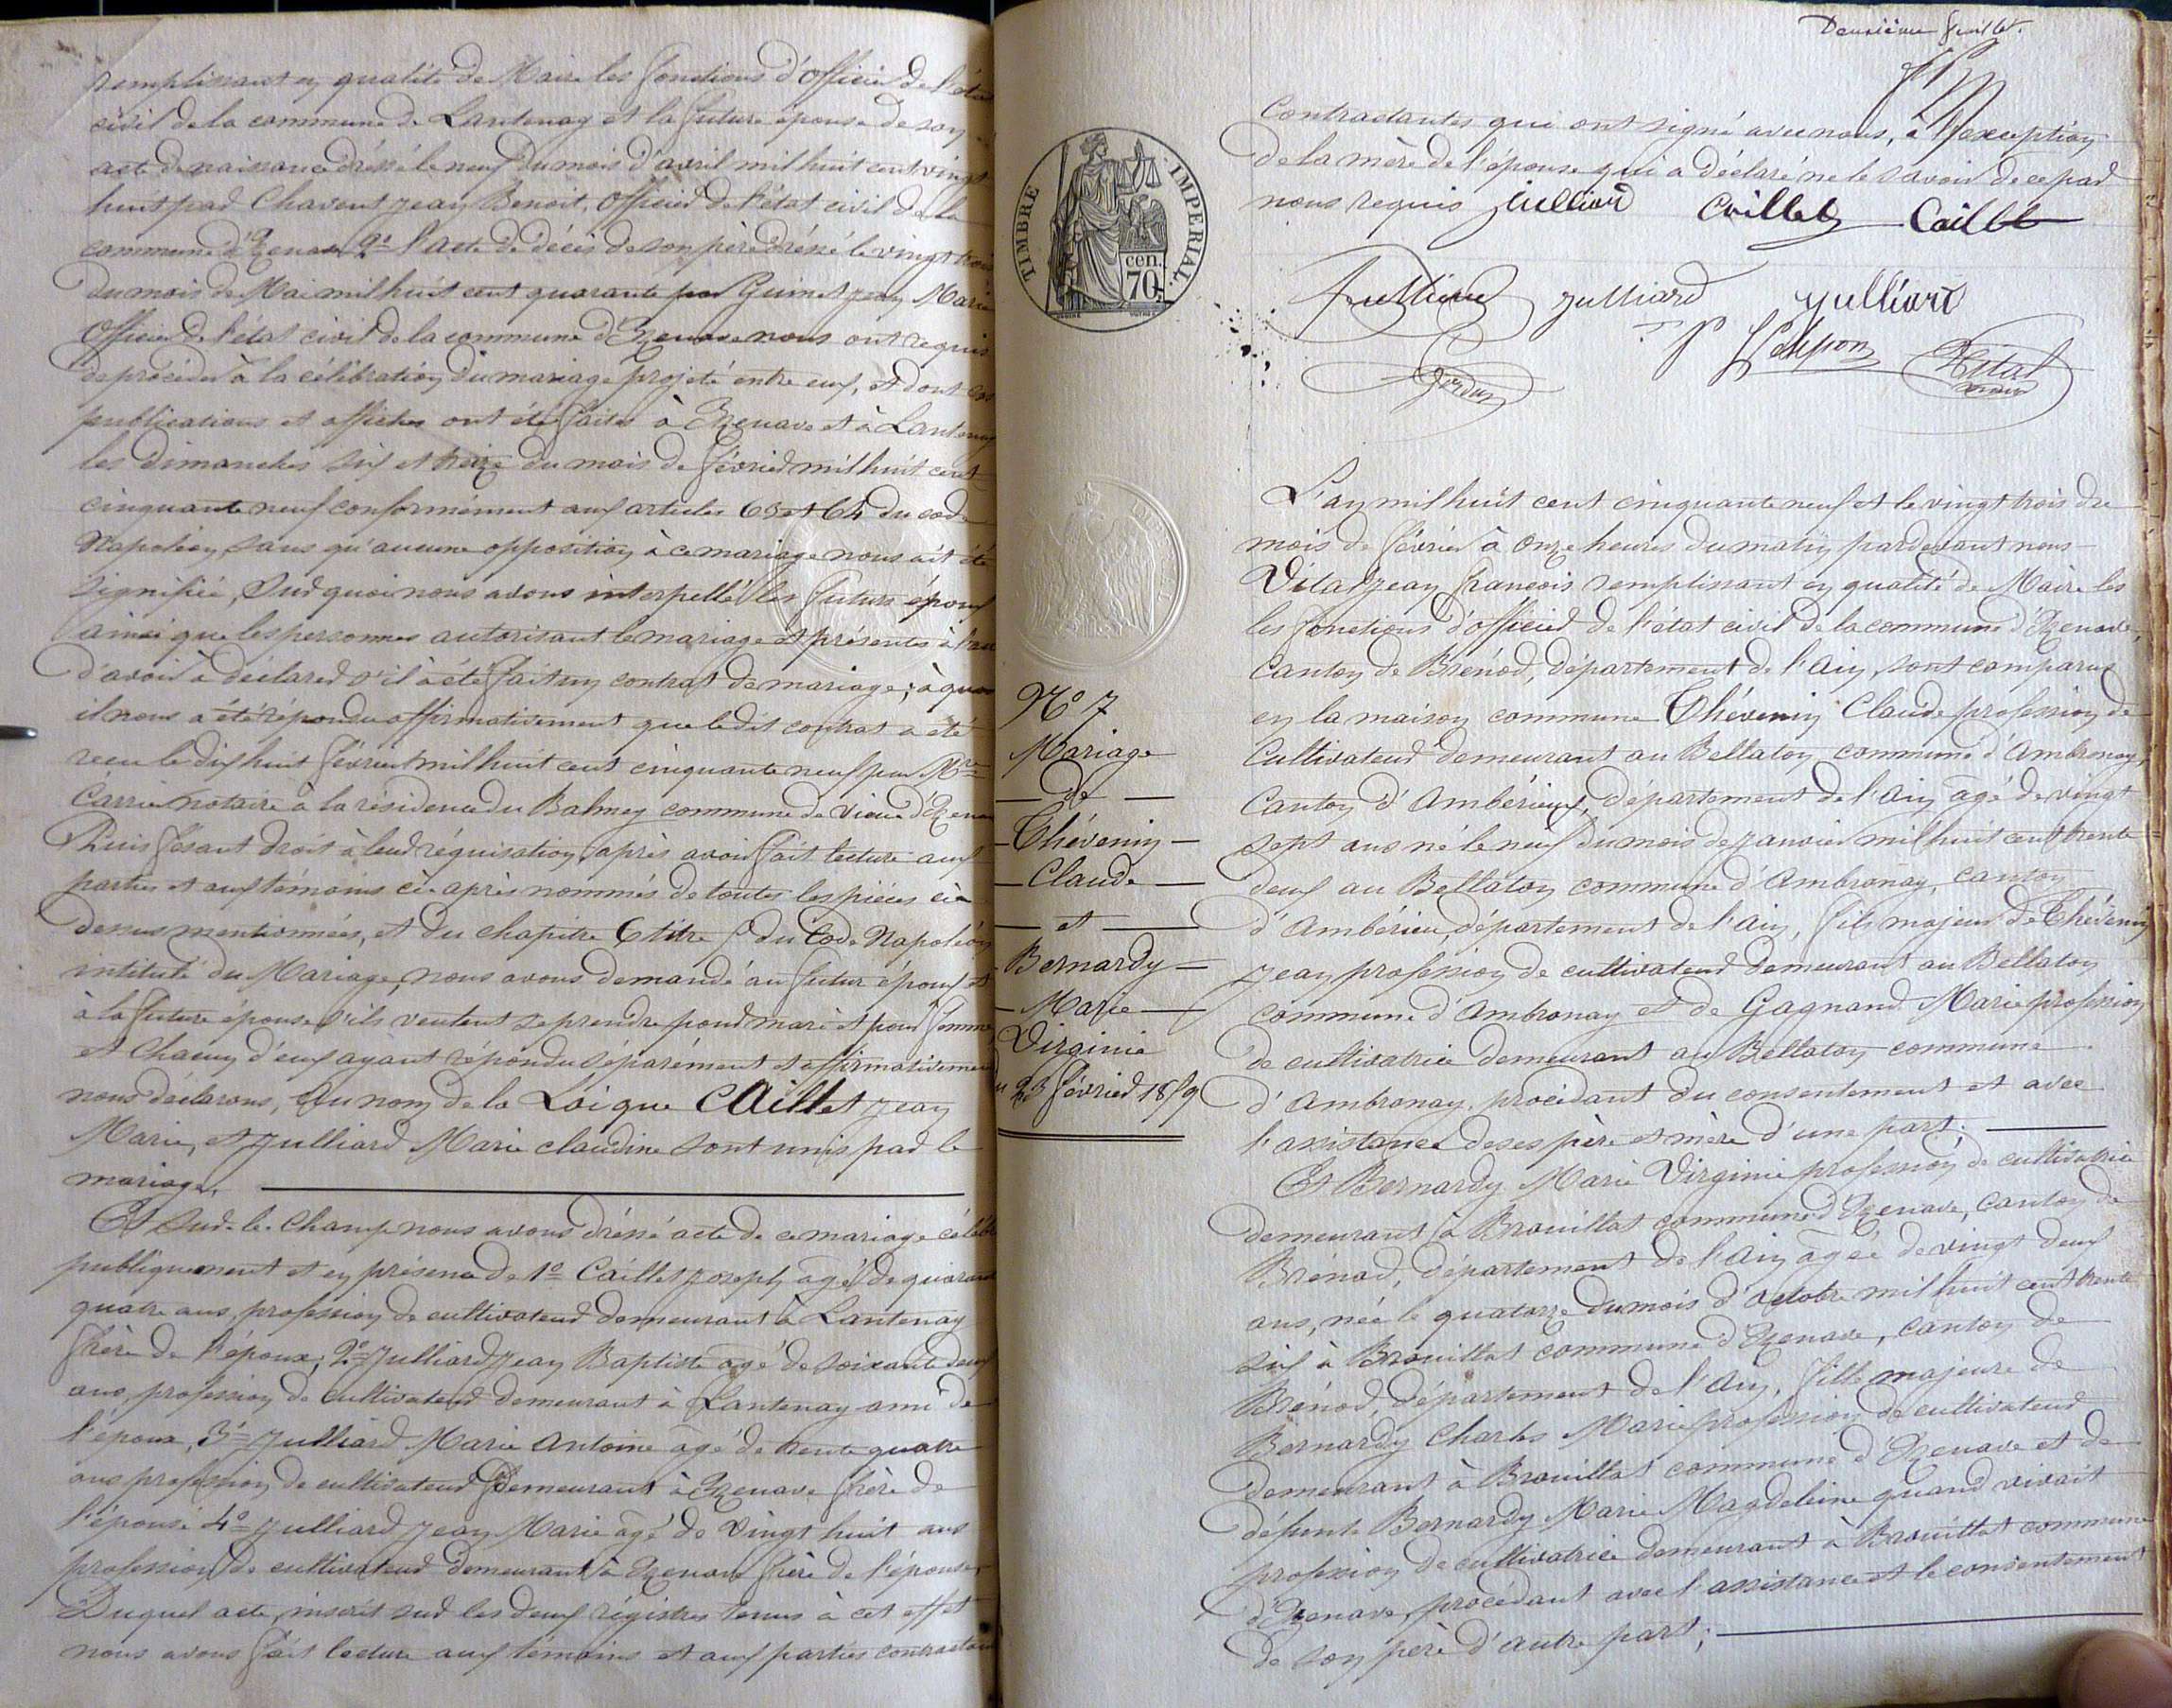 remplissant en qualité de Maire les fonctions d'officier de l'état
civil de la commune de Lantenay et la future épouse de son
acte de naissance dréssé le neuf du mois d'avril mil huit cent vingt
huit par Chavent jean Benoit, Officier de l'état civil de la
commune d'Izenave 2º l'acte de décès de son père dréssé le vingt trois
du mois de Mai mil huit cent quarante par Guinet jean Marie
Officier de l'état civil de la commune d'Izenave nous ont requis
de procéder à la célébration du mariage projeté entre eux, et dont les
publications et affiches ont été faites à Izenave et à Lantenay
les dimanches six et treize du mois de février mil huit cent
cinquante neuf conformément aux articles 63 et 64 du code
Napoléon, sans qu'aucune opposition à ce mariage nous ait été
signifiée, Sur quoi nous avons interpellé les futurs époux
ainsi que les personnes autorisant le mariage et présentes à l'acte
d'avoir à déclarer s'il a été fait un contrat de mariage; à quoi
il nous a été répondu affirmativement que le dit contrat a été
recu le dix huit février mil huit cent cinquante neuf par Mre
Carrie notaire à la résidence du Balmey commune de Vieu d'Izenave
Puis fesant droit à leur réquisition, après avoir fait lecture aux
parties et aux témoins ci-après nommés de toutes les pièces ci-
dessus mentionnées, et du chapitre 6 titre 5 du Code Napoléon
intitulé du Mariage, nous avons demandé au futur époux et
à la future épouse s'ils veulent se prendre pour mari et pour femme
et chacun d'eux ayant répondu séparément et affirmativement
nous déclarons, Au nom de la Loi que Caillet jean
Marie, et julliard Marie claudine sont unis par le
mariage,
Et Sur-le-champ nous avons dréssé acte de ce mariage célébré
publiquement et en présence de 1º Caillet joseph âgé de quarante
quatre ans, profession de cultivateur demeurant à Lantenay
frère de l'époux; 2º julliard jean Baptiste âgé de soixante deux
ans, profession de cultivateur demeurant à Lantenay ami de
l'époux, 3º julliard Marie Antoine âgé de trente quatre
ans profession de cultivateur demeurant à Izenave frère de
l'épouse 4º julliard jean Marie âgé de Vingt huit ans
profession de cultivateur demeurant à Izenave frère de l'épouse,
Duquel acte, inscrit sur les deux régistres tenus à cet effet
nous avons fait lecture aux témoins et aux parties contractantes
Deuxième feuillet.
Contractantes qui ont signé avec nous, à l'exception
de la mère de l'épouse qui a déclaré ne le savoir de ce par
nous requis julliard Caillet Caillet
julliard julliard
Vital
maire
TIMBRE IMPERIAL.
cen.
70.
Nº 7
Mariage
de
Thévenin
Claude
et
Bernardy
Marie
Virginie
du 23 février 1859
L'an mil huit cent cinquante neuf et le vingt trois du
mois de février à onze heures du matin pardevant nous
Vital jean françois remplissant en qualité de Maire les
les fonctions d'officier de l'état civil de la commune d'Izenave,
canton de Brénod, département de l'Ain, sont comparus
en la maison commune Thévenin Claude profession de
Cultivateur demeurant au Bellaton commune d'Ambronay,
Canton d'Ambérieux, département de l'Ain âgé de vingt
sept ans né le neuf du mois de janvier mil huit cent trente
deux au Bellaton commune d'Ambronay, canton
d'Ambérieu, département de l'Ain, fils majeur de Thévenin
jean profession de cultivateur demeurant au Bellaton
commune d'Ambronay et de Gagnand Marie profession
de cultivatrice demeurant au Bellaton commune
d'Ambronay, procédant du consentement et avec
l'assistance de ses père et mère d'une part.
Et Bernardy Marie Virginie profession de cultivatrice
demeurant à Brouillat commune d'Izenave, canton de
Brénod, département de l'Ain âgée de vingt deux
ans, née le quatorze du mois d'octobre mil huit cent trente
six à Brouillat commune d'Izenave, canton de
Brénod, département de l'Ain, fille majeure de
Bernardy Charles Marie profession de cultivateur
demeurant à Brouillat commune d'Izenave et de
défunte Bernardy Marie Magdeleine quand vivait
profession de cultivatrice demeurant à Brouillat commune
d'Izenave, procédant avec l'assistance et le consentement
de son père d'autre part;